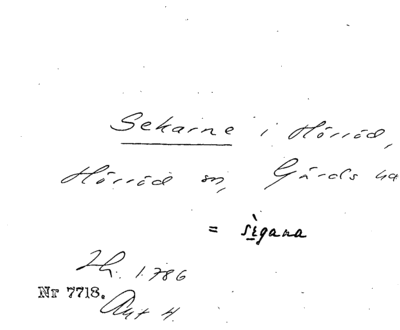 Sekarne i Hörröd,
Hörröd sn, Gärds hd
= sègana
Lh. 1786
Nr 7718. Ant 4.